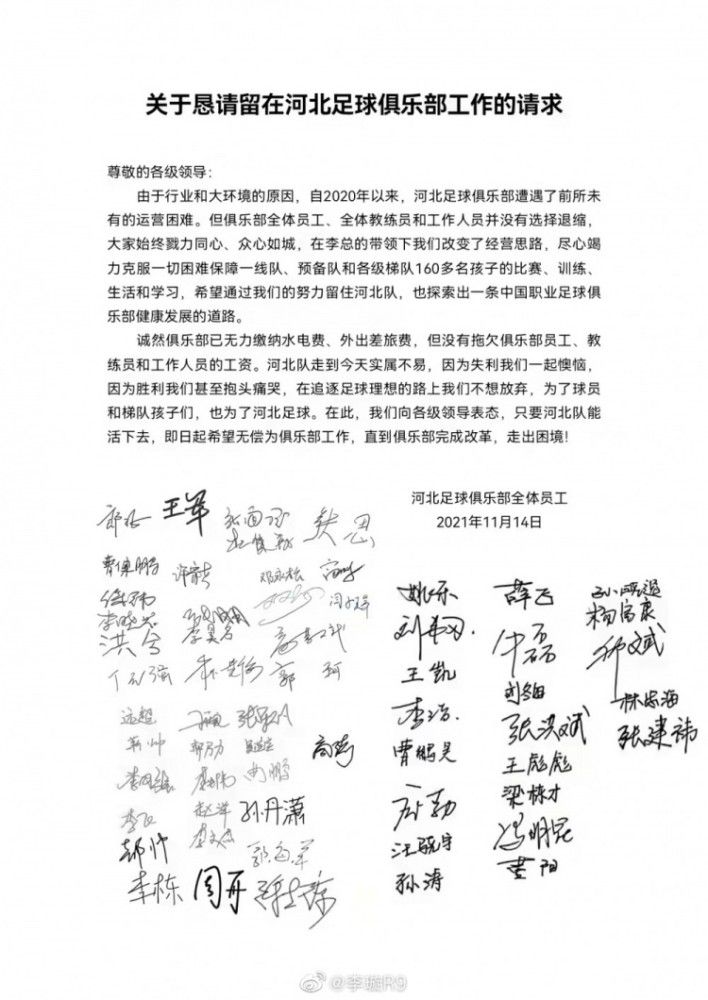 关于恳请留在河北足球俱乐部工作的请求
尊敬的各级领导：
由于行业和大环境的原因，自2020年以来，河北足球俱乐部遭遇了前所未
有的运营困难。但俱乐部全体员工、全体教练员和工作人员并没有选择退缩，
大家始终戮力同心、众心如城，在李总的带领下我们改变了经营思路，尽心竭
力克服一切困难保障一线队、预备队和各级梯队160多名孩子的比赛、训练、
生活和学习，希望通过我们的努力留住河北队，也探索出一条中国职业足球俱
乐部健康发展的道路。
诚然俱乐部已无力缴纳水电费、外出差旅费，但没有拖欠俱乐部员工、教
练员和工作人员的工资。河北队走到今天实属不易，因为失利我们一起懊恼，
因为胜利我们甚至抱头痛哭，在追逐足球理想的路上我们不想放弃，为了球员
和梯队孩子们，也为了河北足球。在此，我们向各级领导表态，只要河北队能
活下去，即日起希望无偿为俱乐部工作，直到俱乐部完成改革，走出困境！
河北足球俱乐部全体员工
2021年11月14日
王军
洪兮
郭珂
姚乐
薛飞
杨富康
王凯
李浩
曹鹏昊
张洪斌
林志海
张建祎
王彪彪
梁栋才
汪骁宇
冯明昆
孙涛
黄阳
高嵩
赵洋
孙丹潇
郭海军
郝帅
李栋
周开
@李璇R9